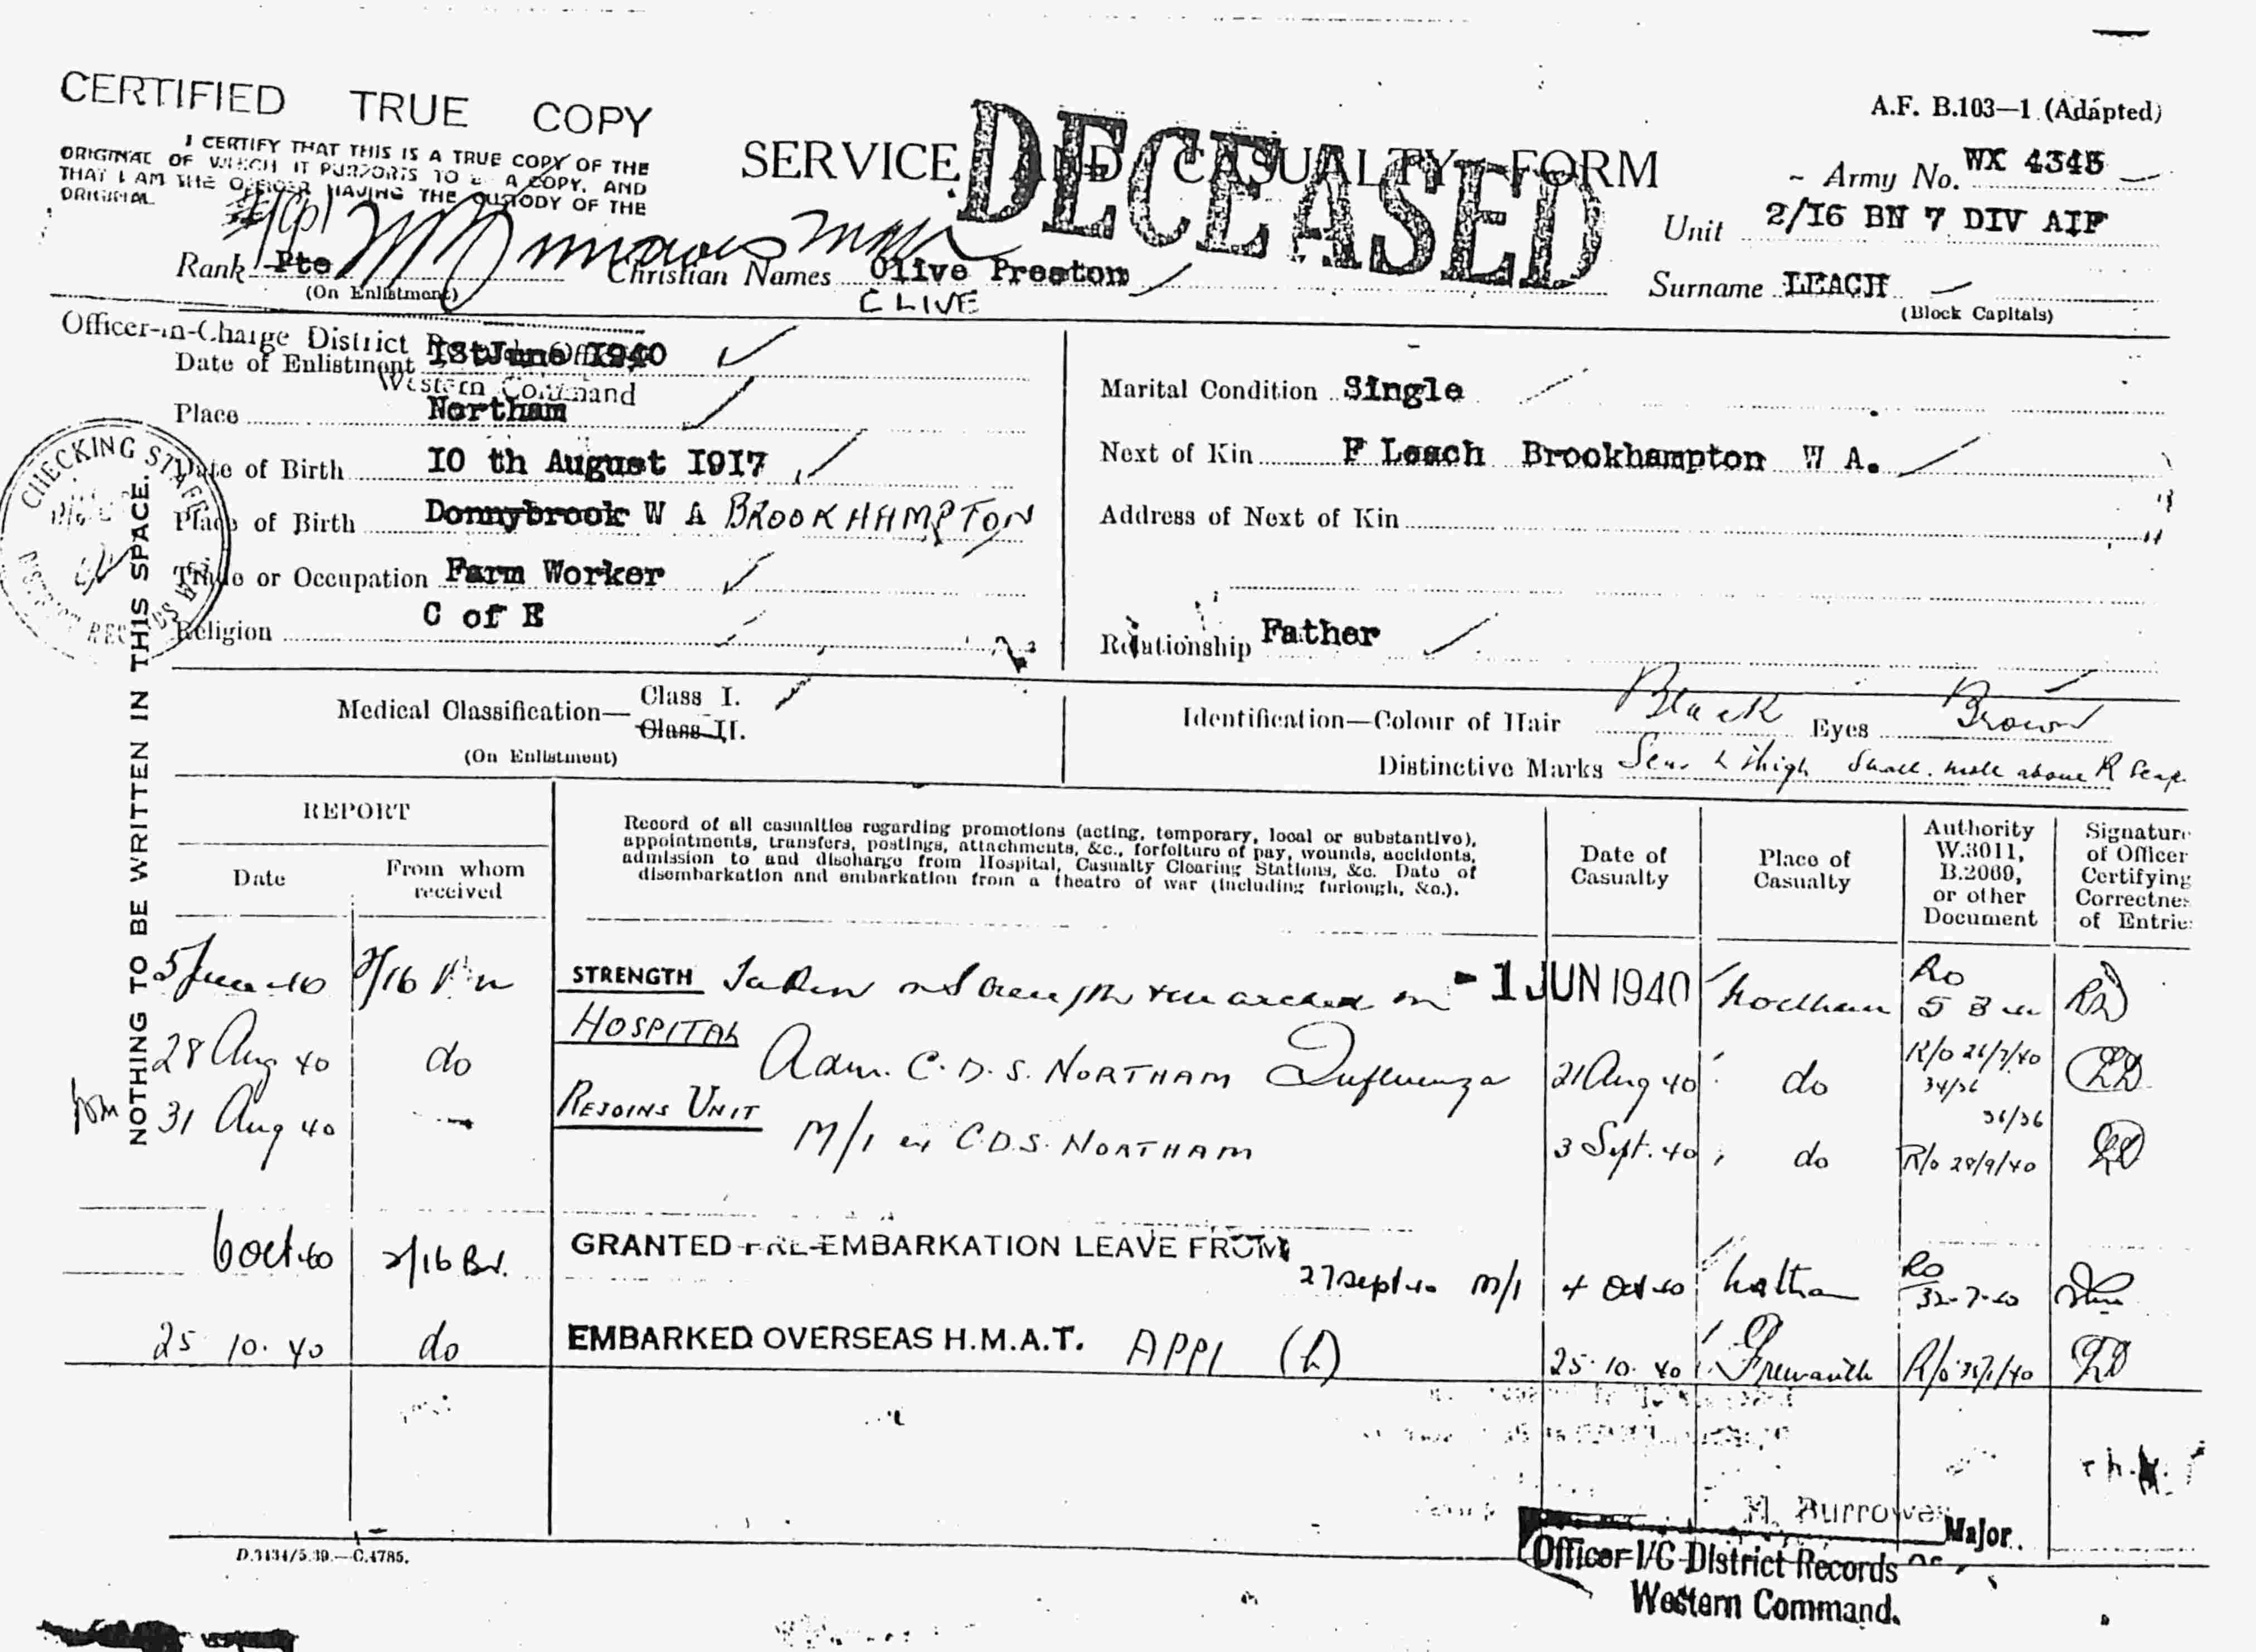 CERTIFIED TRUE COPY
I CERTIFY THAT THIS IS A TRUE COPY OF THE
ORIGINAL OF WHICH IT PURPORTS TO BE A COPY, AND
THAT I AM THE OFFICER HAVING THE CUSTODY OF THE
ORIGINAL
A.F. B.103—1 (Adapted)
SERVICE AND CASUALTY FORM
DECEASED
Army No. WX 4345
Unit 2/16 BN 7 DIV AIF
Rank Pte
(On Enlistment)
Christian Names Olive Preston
CLIVE
Surname LEACH
(Block Capitals)
Officer-in-Charge District Records Office
Western Command
Date of Enlistment 1st June 1940
Place Northam
Date of Birth 10 th August 1917
Place of Birth Donnybrook W A BROOKHAMPTON
Trade or Occupation Farm Worker
Religion C of E
Marital Condition Single
Next of Kin F Leach Brookhampton W A.
Address of Next of Kin
Relationship Father
CHECKING STAFF
NOTHING TO BE WRITTEN IN THIS SPACE.
Medical Classification— Class I.
Class II.
(On Enlistment)
Identification—Colour of Hair Black Eyes Brown
Distinctive Marks Scar L thigh Small mole above R
REPORT
Date
From whom received
Record of all casualties regarding promotions (acting, temporary, local or substantive),
appointments, transfers, postings, attachments, &c., forfeiture of pay, wounds, accidents,
admission to and discharge from Hospital, Casualty Clearing Stations, &c. Date of
disembarkation and embarkation from a theatre of war (including furlough, &c.).
Date of Casualty
Place of Casualty
Authority W.3011, B.2069, or other Document
Signature of Officer Certifying Correctnes of Entrie
5 June 40 2/16 Bn STRENGTH Taken on Strength on - 1 JUN 1940 Northam Ro 5
28 Aug 40 do HOSPITAL Adm. C.D.S. NORTHAM Influenza 21 Aug 40 do R/o 26/7/40
34/36
31 Aug 40 REJOINS UNIT M/I ex C.D.S. NORTHAM 3 Sept. 40 do 36/36
R/o 28/9/40
6 Oct 40 2/16 Bn. GRANTED PRE-EMBARKATION LEAVE FROM
27 Sept 40 M/I 4 Oct 40 Northam Ro
25 10. 40 do EMBARKED OVERSEAS H.M.A.T. APPI (L) 25. 10. 40 Fremantle
M. Burrowes Major.
Officer I/C District Records
Western Command.
D.3434/5.39.—C.4785.